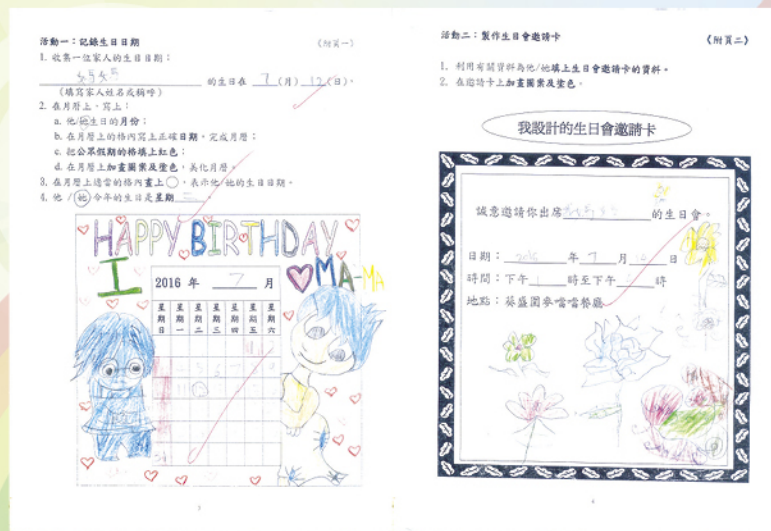 活動一：記錄生日日期
《附頁一》
1. 收集一位家人的生日日期：
媽媽 的生日在 7 (月) 12 (日)。
(填寫家人姓名或稱呼)
2. 在月曆上，寫上：
a. 他/她生日的月份；
b. 在月曆上的格內寫上正確日期，完成月曆；
c. 把公眾假期的格填上紅色；
d. 在月曆上加畫圖案及塗色，美化月曆。
3. 在月曆上適當的格內畫上○，表示他/她的生日日期。
4. 他 / 她 今年的生日是星期 二
HAPPY BIRTHDAY
I MA-MA
2016 年 7 月
星期日 星期一 星期二 星期三 星期四 星期五 星期六
1 2
31
3
活動二：製作生日會邀請卡
《附頁二》
1. 利用有關資料為他/她填上生日會邀請卡的資料。
2. 在邀請卡上加畫圖案及塗色。
我設計的生日會邀請卡
誠意邀請你出席 的生日會。
日期： 2016 年 7 月 日
時間：下午 1 時至下午 時
地點：葵盛圍麥噹噹餐廳
4